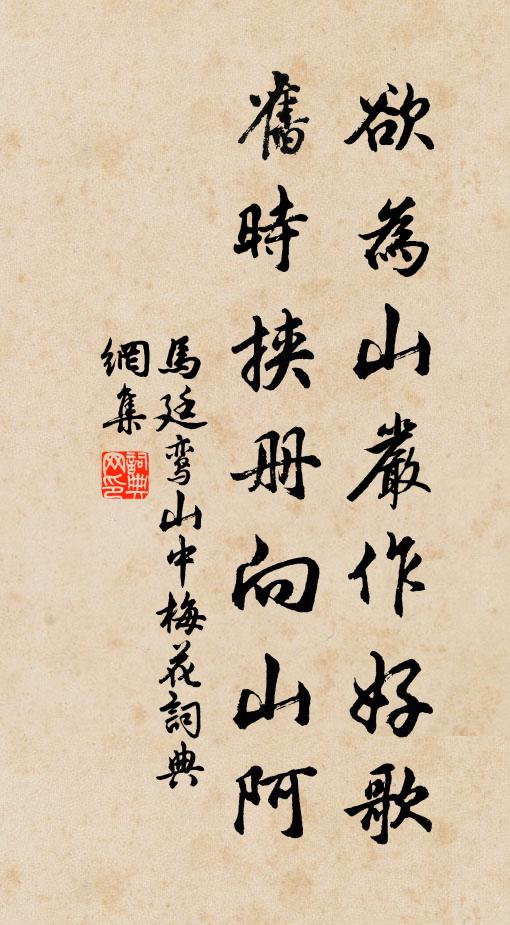 欲為山巖作好歌
舊時挾册向山阿
馬廷鸾山中梅花詞典
網集
詞典網印